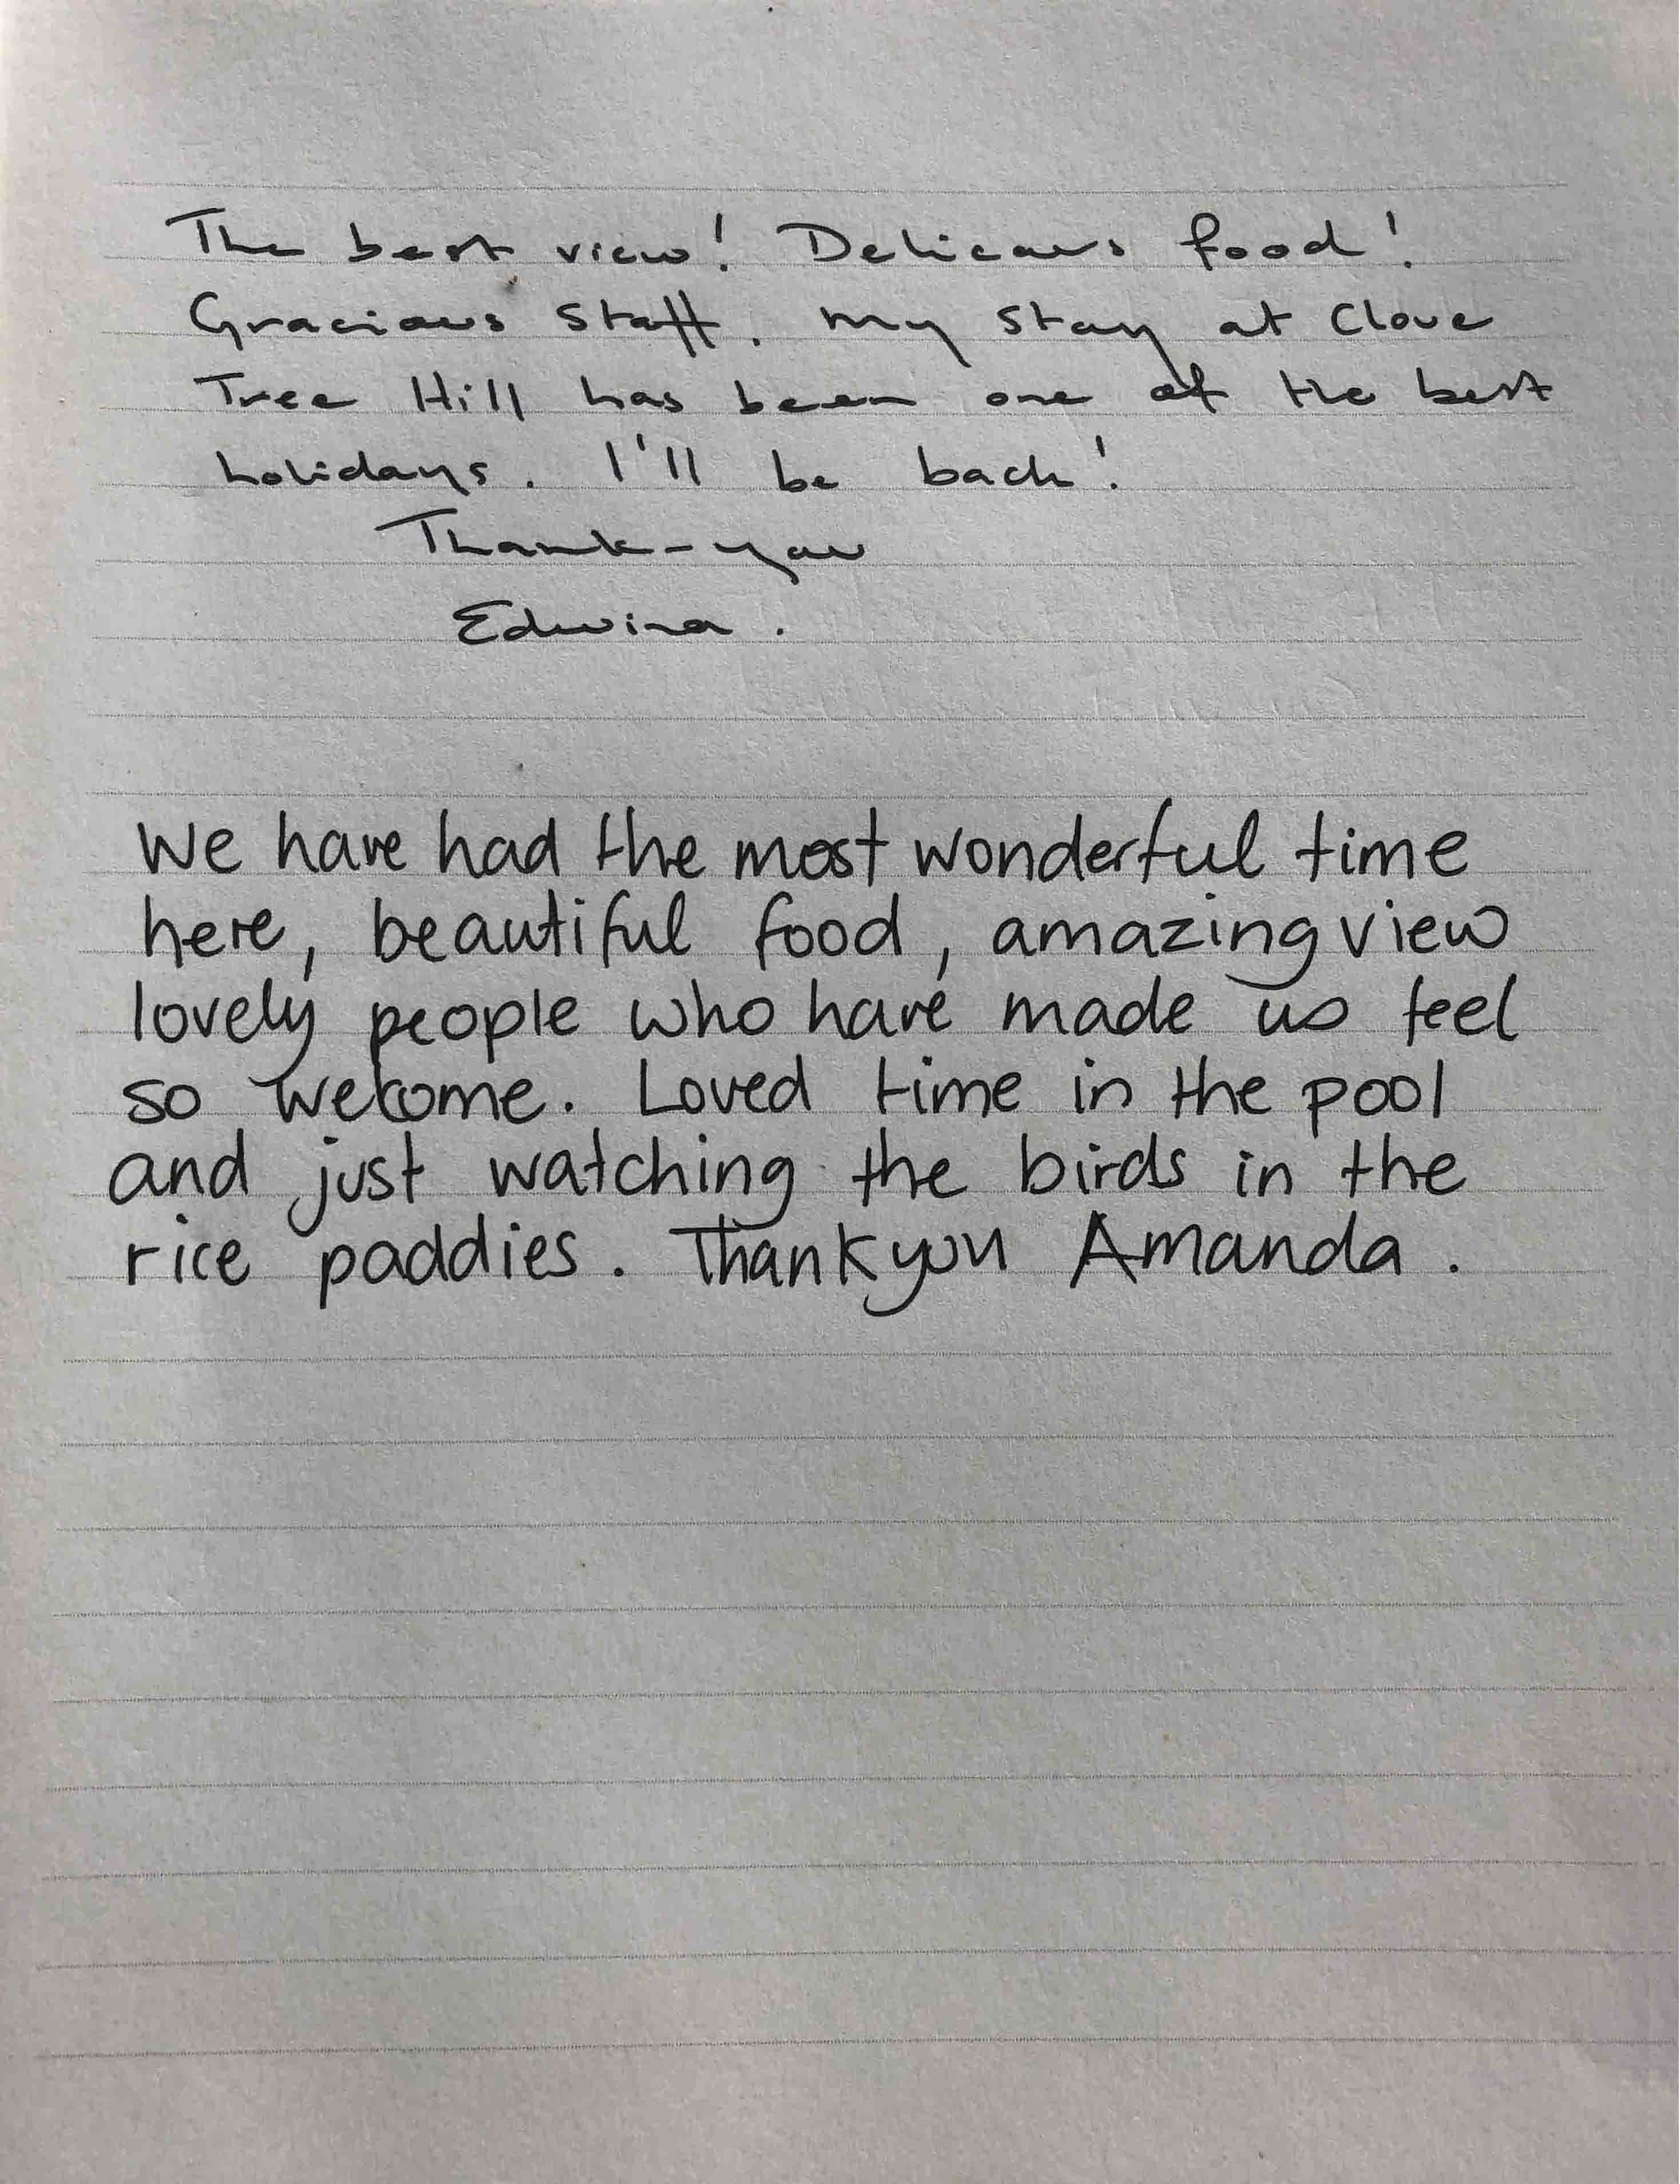 The best view! Delicious food!
Gracious staff. My stay at Clove
Tree Hill has been one of the best
holidays. I'll be back!
Thank-you
Edwina.
We have had the most wonderful time
here, beautiful food, amazing view
lovely people who have made us feel
so welcome. Loved time in the pool
and just watching the birds in the
rice paddies. Thankyou Amanda.